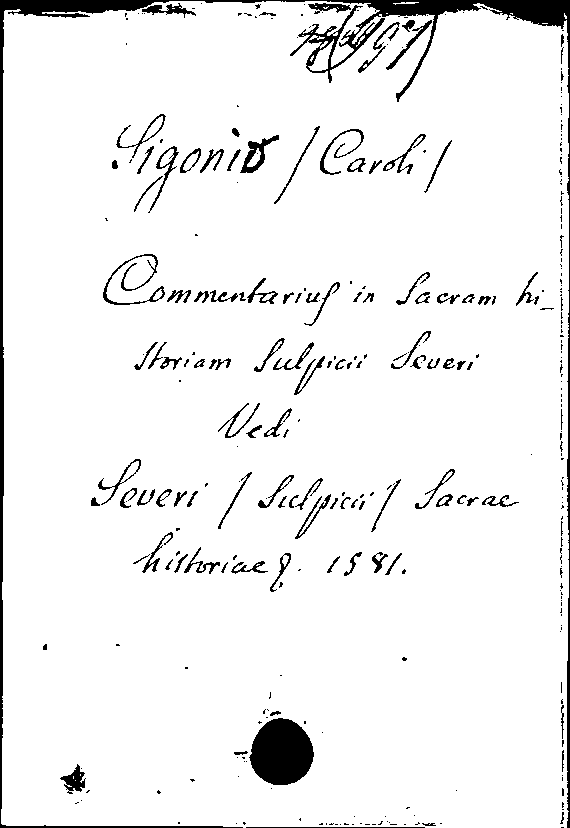 Sigonio / Caroli /
Commentarius in Sacram hi-
storiam Sulpicii Severi
Vedi
Severi / Sulpicii / Sacrae
historiae &. 1581.